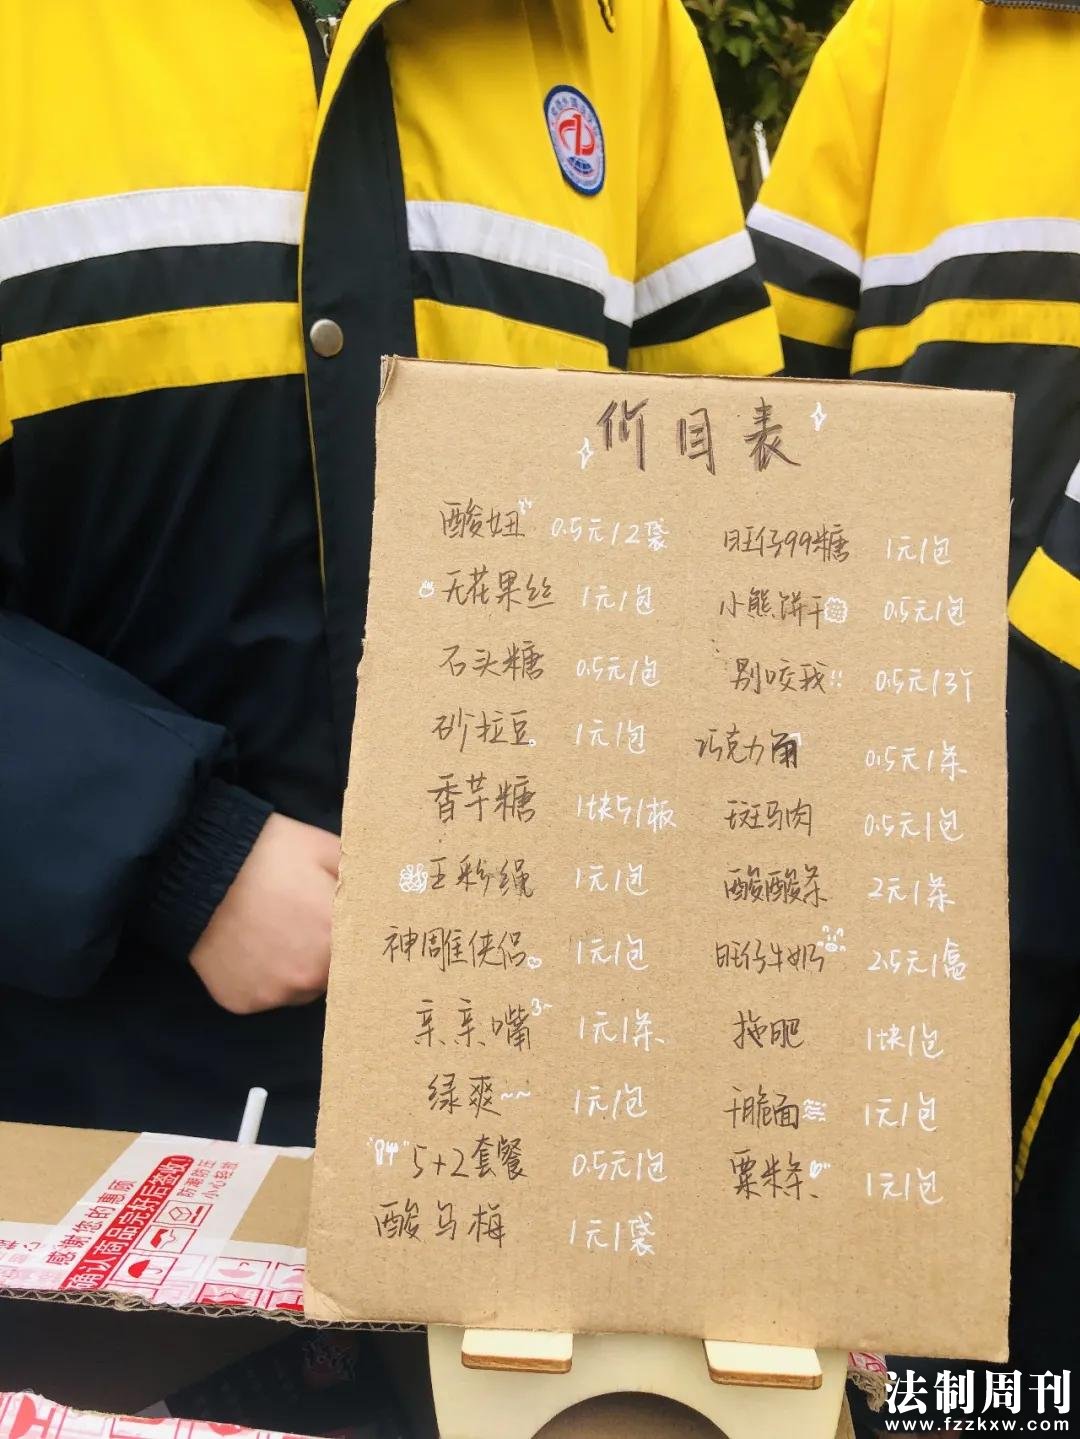 价目表
酸妞 0.5元/2袋
无花果丝 1元/包
石头糖 0.5元/包
砂拉豆 1元/包
香芋糖 1块5/板
王彩绳 1元/包
神雕侠侣 1元/包
亲亲嘴 1元/条
绿爽~~ 1元/包
5+2套餐 0.5元/包
酸乌梅 1元/袋
旺仔99糖 1元/包
小熊饼干 0.5元/包
别咬我!! 0.5元/3个
巧克力 0.5元/条
斑马肉 0.5元/包
酸酸条 2元/条
旺仔牛奶 2.5元/盒
拖肥 1块/包
干脆面 1元/包
粟米条 1元/包
感谢您的惠顾
确认商品完好后签收!
防潮防压
小心轻放
法制周刊
www.fzzkxw.com